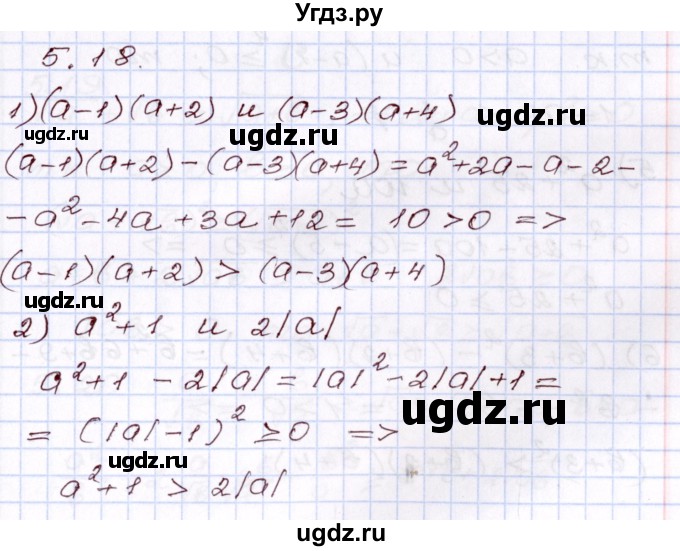 Угдз.ру
5.18.
1) (a-1)(a+2) и (a-3)(a+4)
ugdz.ru ugdz.ru ugdz.ru
(a-1)(a+2)-(a-3)(a+4)=a²+2a-a-2-
-a²-4a+3a+12= 10>0 =>
(a-1)(a+2) > (a-3)(a+4)
ugdz.ru
2) a²+1 и 2|a|
a²+1 -2|a|=|a|²-2|a|+1=
ugdz.ru
= (|a|-1)² ≥0 =>
ugdz.ru
a²+1 > 2|a|
ugdz.ru